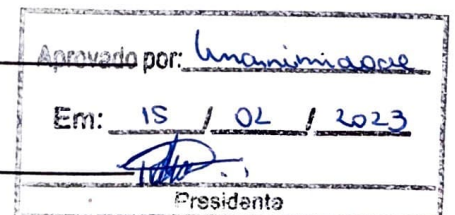 Aprovado por: Unanimidade
Em: 15 / 02 / 2023
Presidenta